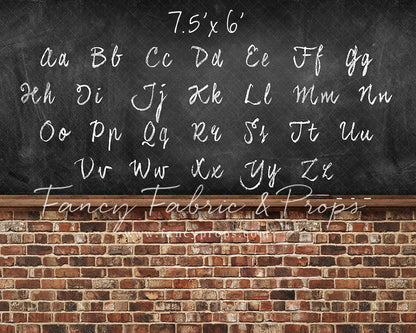 7.5'x 6'
Aa Bb Cc Dd Ee Ff Gg
Hh Ii Jj Kk Ll Mm Nn
Oo Pp Qq Rr Ss Tt Uu
Vv Ww Xx Yy Zz
Fancy Fabric & Props